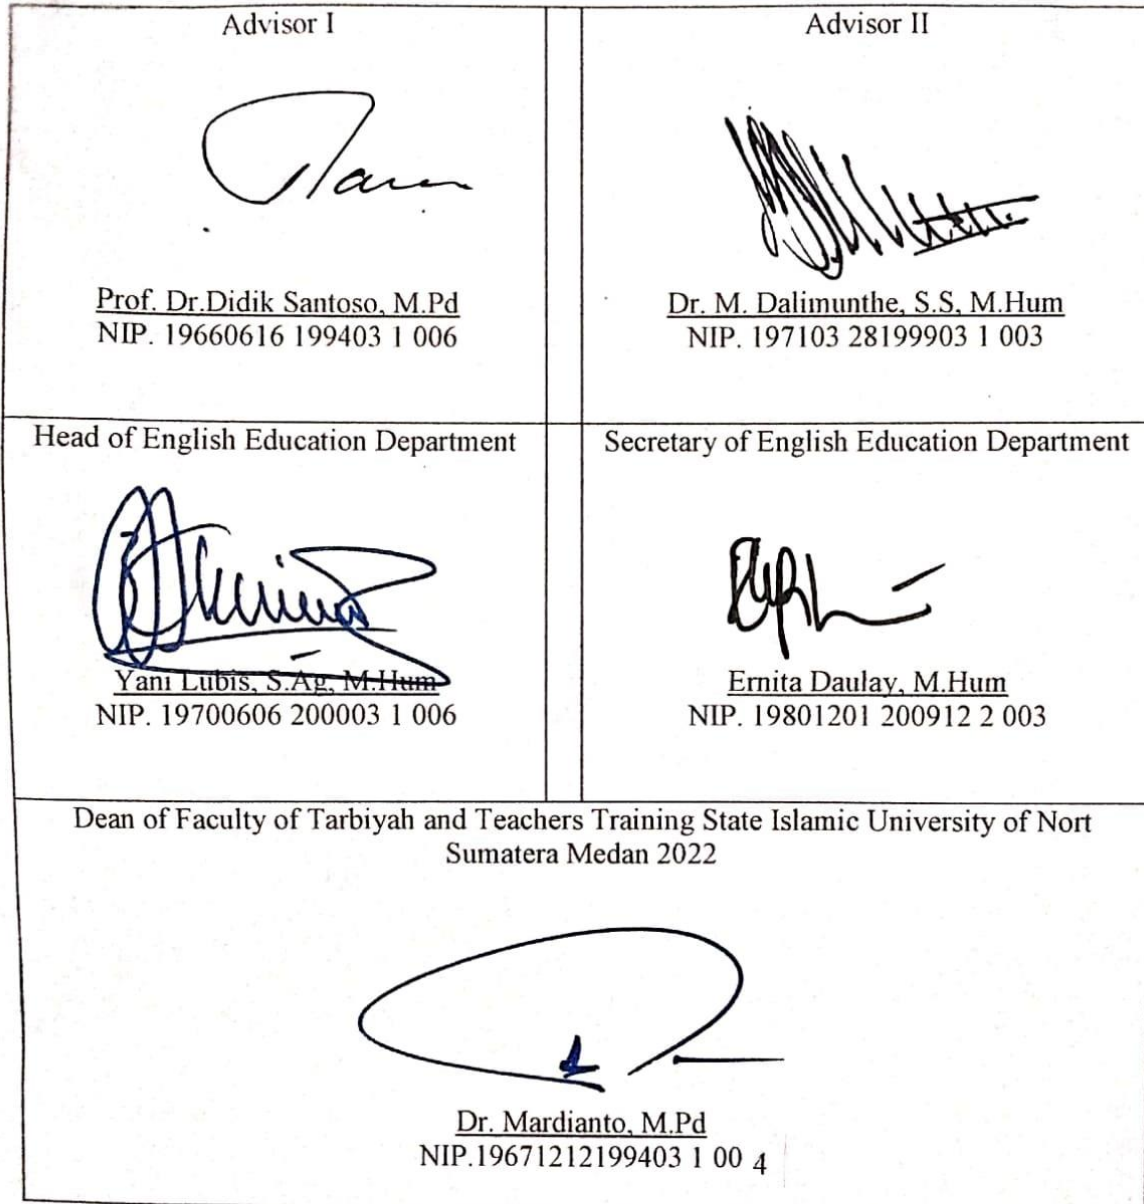 Advisor I
Prof. Dr.Didik Santoso, M.Pd
NIP. 19660616 199403 1 006
Advisor II
Dr. M. Dalimunthe, S.S, M.Hum
NIP. 197103 28199903 1 003
Head of English Education Department
Yani Lubis, S.Ag, M.Hum
NIP. 19700606 200003 1 006
Secretary of English Education Department
Ernita Daulay, M.Hum
NIP. 19801201 200912 2 003
Dean of Faculty of Tarbiyah and Teachers Training State Islamic University of Nort
Sumatera Medan 2022
Dr. Mardianto, M.Pd
NIP.19671212199403 1 00 4